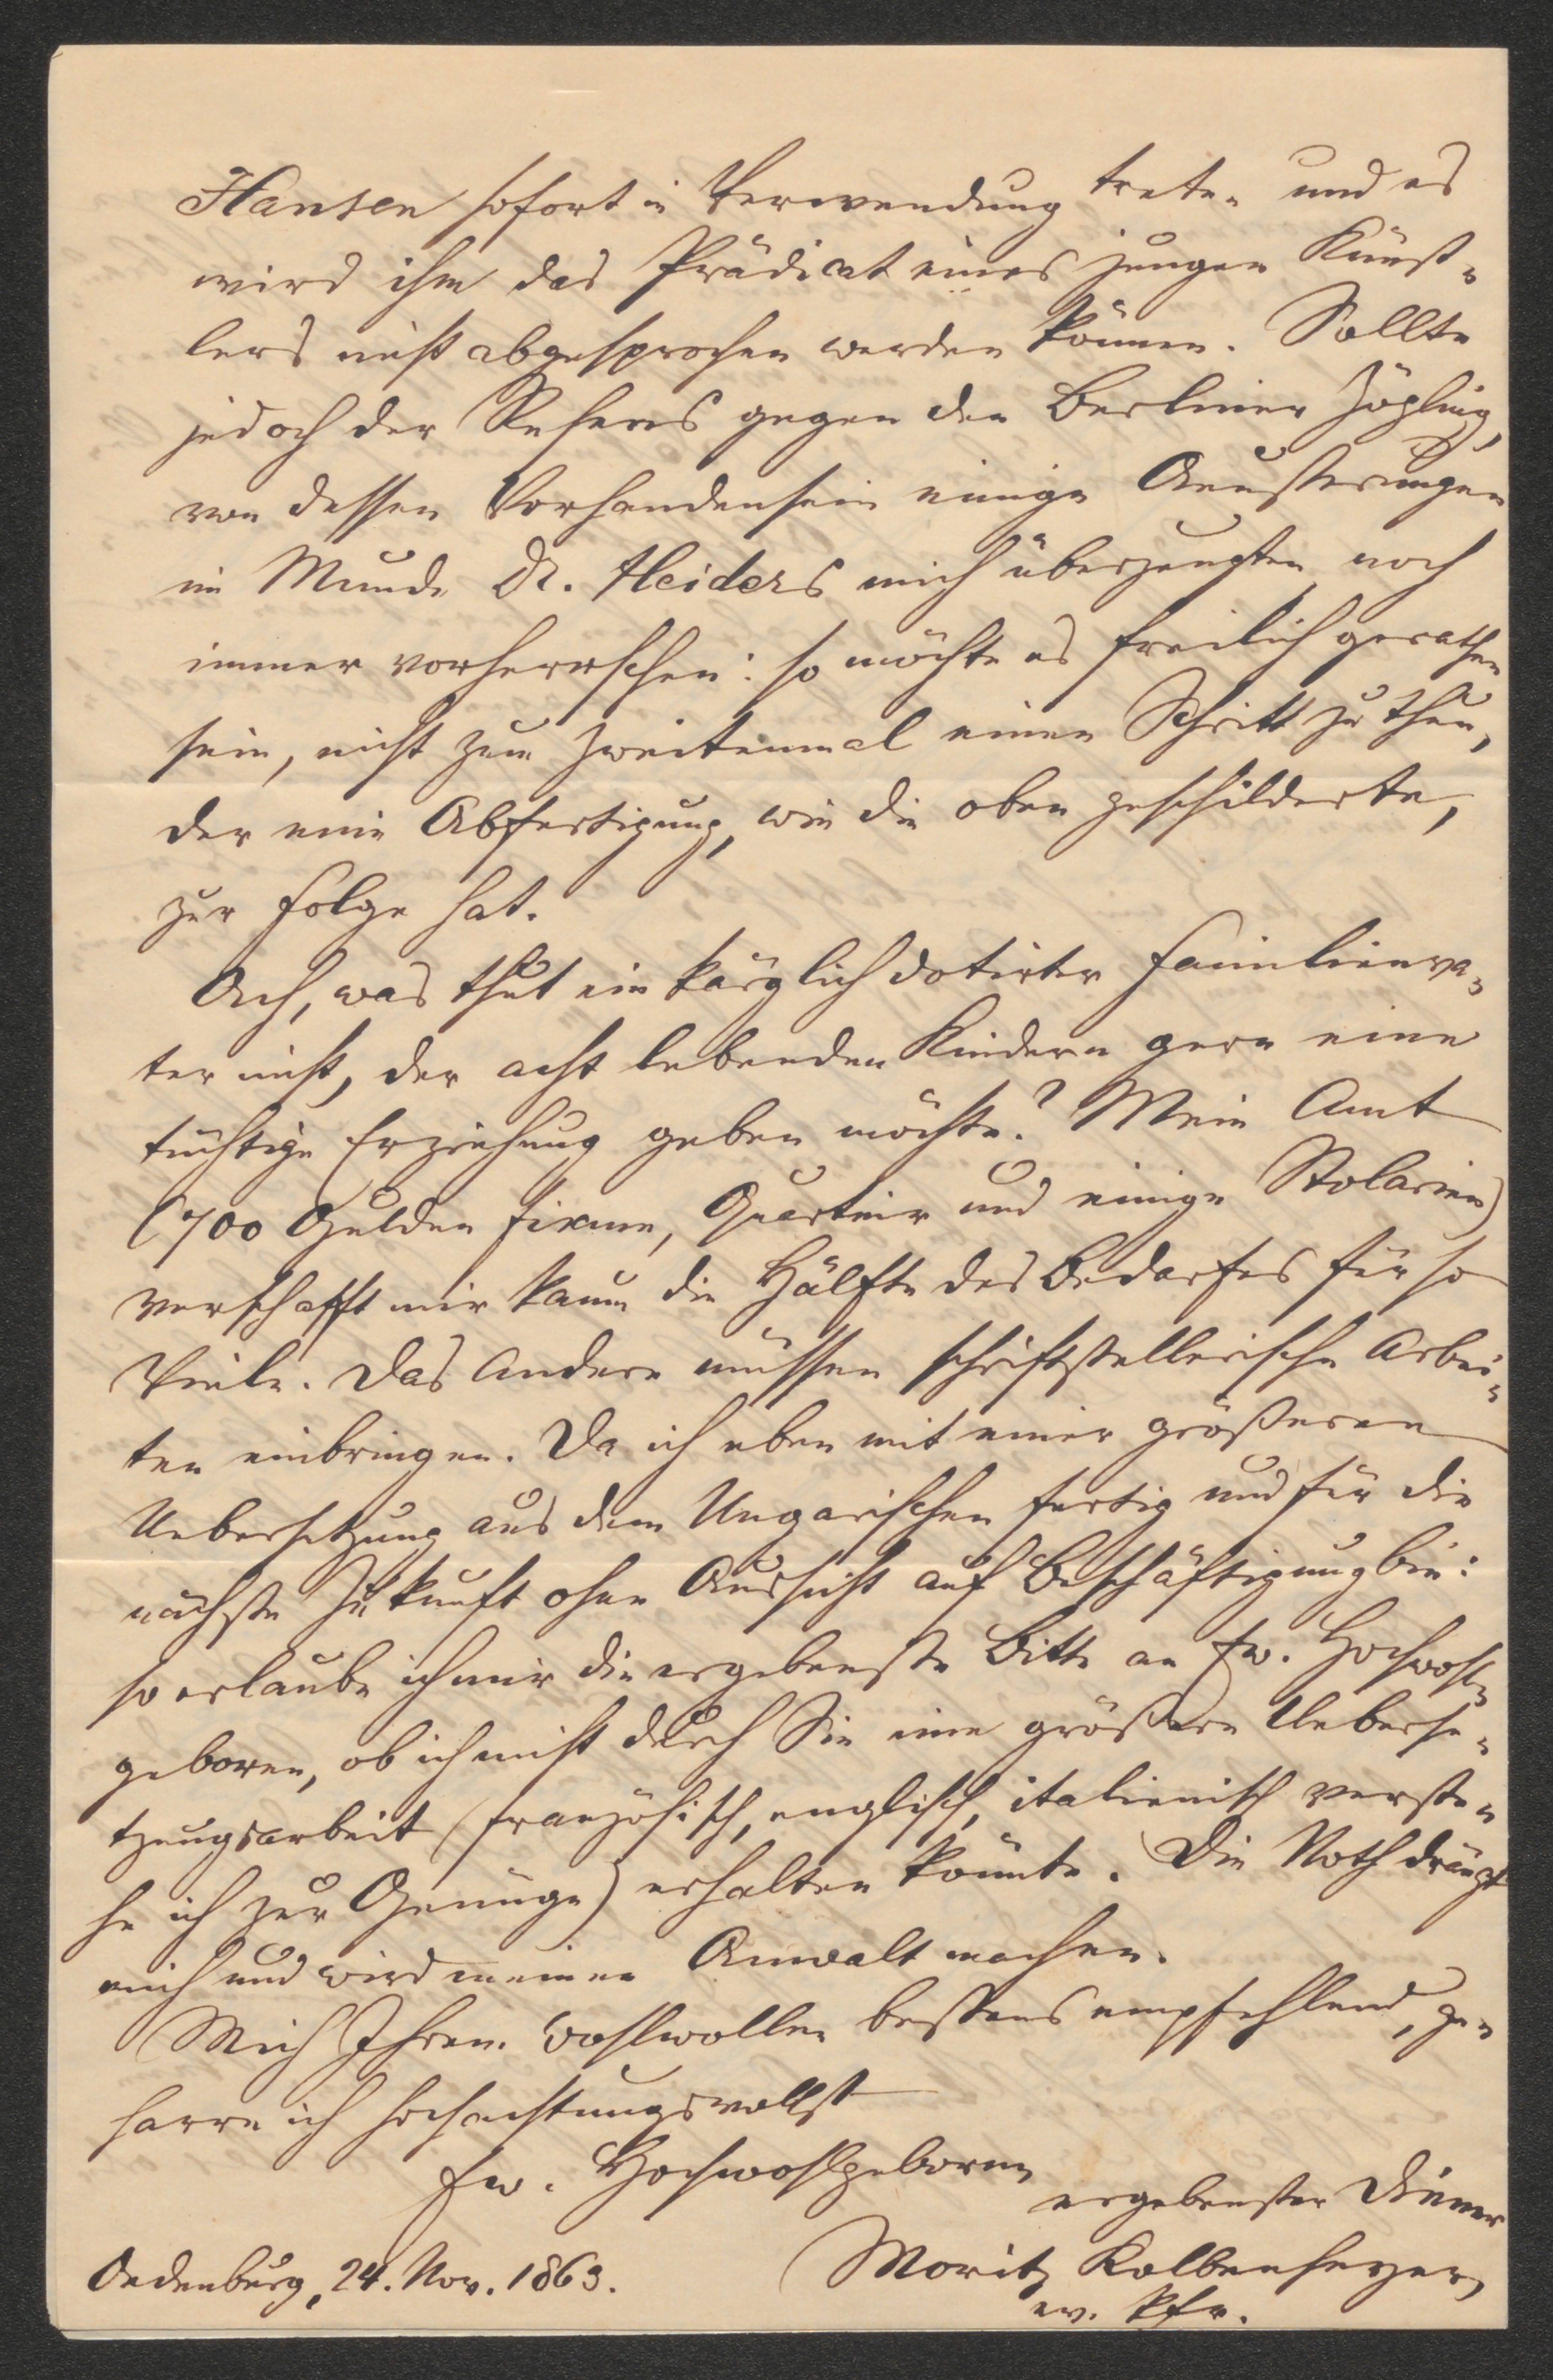 Hansen sofort in Verwendung treten und es
wird ihm das Prädicat eines jungen Künst-
lers nicht abgesprochen werden können. Sollte
jedoch der Refus gegen den Berliner Zögling,
von dessen Vorhandensein einige Aeußerungen
im Munde Dr. Heiders mich überzeugten, noch
immer vorherrschen: so möchte es freilich gerathen
sein, nicht zum zweitenmal einen Schritt zu thun,
der eine Abfertigung, wie die oben geschilderte,
zur Folge hat.
Ach, was thut ein kärglich dotirter Familienva-
ter nicht, der acht lebenden Kindern gern eine
tüchtige Erziehung geben möchte? Mein Amt
(700 Gulden Fixum, Quartier und einige Stolarien)
verschafft mir kaum die Hälfte des Bedarfes für so
Viele. Das Andere müssen schriftstellerische Arbei-
ten einbringen. Da ich eben mit einer größeren
Uebersetzung aus dem Ungarischen fertig und für die
nächste Zukunft ohne Aussicht auf Beschäftigung bin:
so erlaube ich mir die ergebenste Bitte an Ew. Hochwohl-
geboren, ob ich nicht durch Sie eine größere Ueberse-
tzungsarbeit (französisch, englisch, italienisch verste-
he ich zur Genüge) erhalten könnte. Die Noth drängt
mich und wird meinen Anwalt machen.
Mich Ihrem Wohlwollen bestens empfehlend, ge-
harre ich hochachtungsvollst
Ew. Hochwohlgeboren
ergebenster Diener
Moritz Kolbenheyer,
ev. Pfr.
Oedenburg, 24. Nov. 1863.